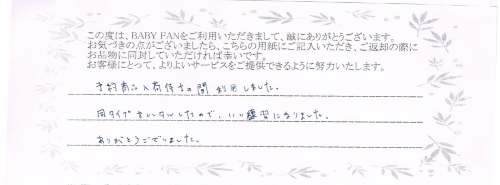 この度は、BABY FANをご利用いただきまして、誠にありがとうございます。
お気づきの点がございましたら、こちらの用紙にご記入いただき、ご返却の際に
お品物に同封していただければ幸いです。
お客様にとって、よりよいサービスをご提供できるように努力いたします。
予約商品入荷待ちの間 利用しました。
同タイプをレンタルしたので、いい練習になりました。
ありがとうございました。